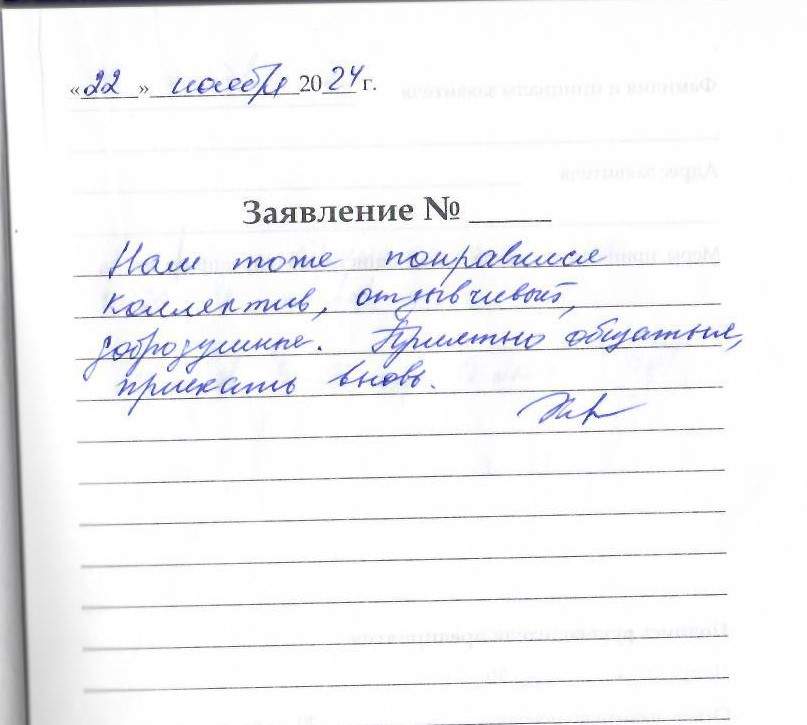 «22» ноября 2024 г.
Заявление № _____
Нам тоже понравился
коллектив, отзывчивый,
добродушные. Приятно общаться,
приехать вновь.